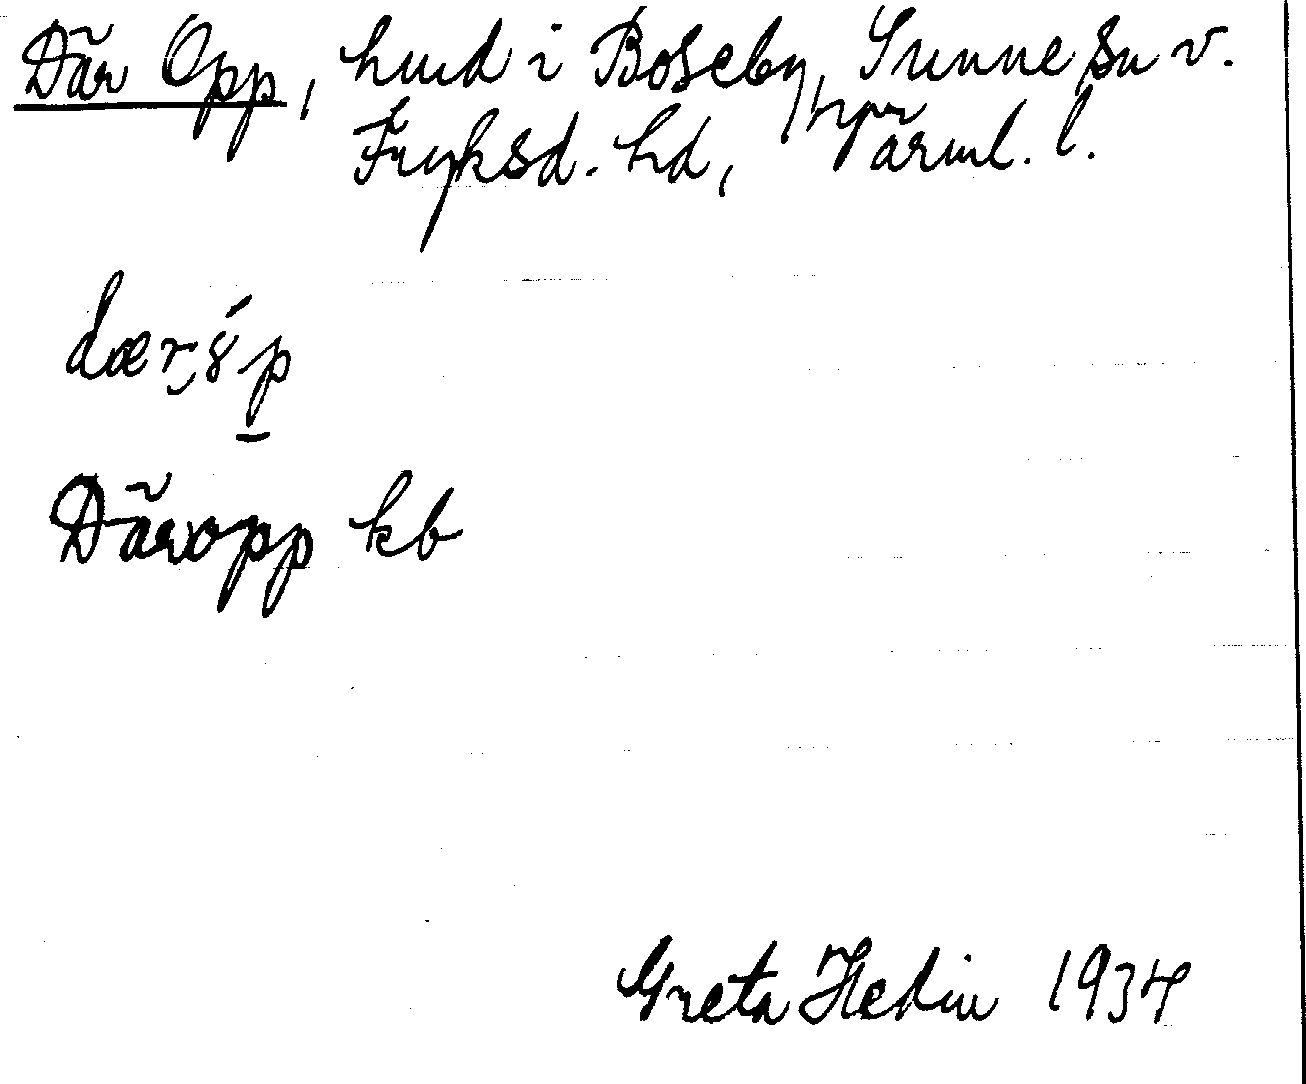 Där Opp, hmd i Boseby, Sunne sn v.
Fryksd. hd, Värml. l.
Däropp kb
Greta Hedin 1934